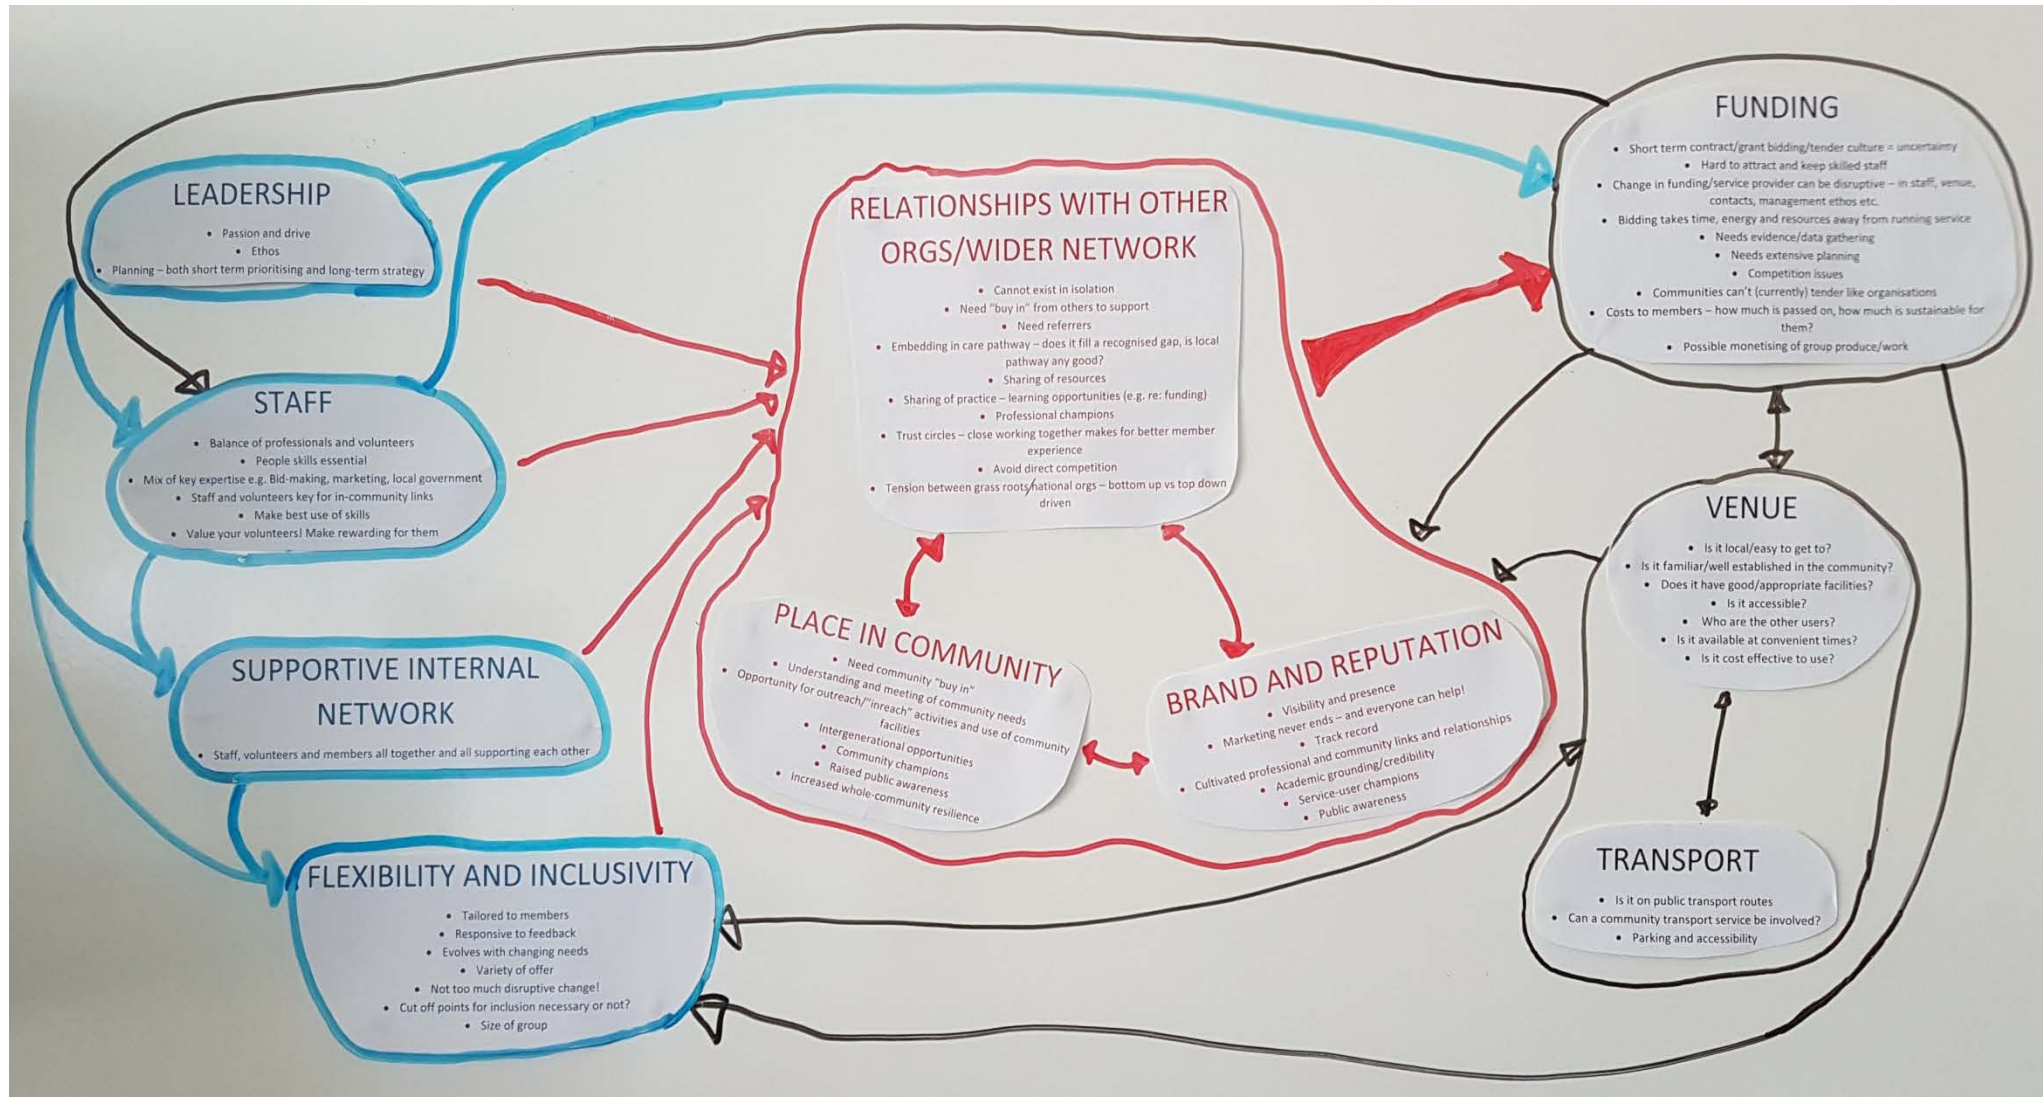 LEADERSHIP
• Passion and drive
• Ethos
• Planning – both short term prioritising and long-term strategy
STAFF
• Balance of professionals and volunteers
• People skills essential
• Mix of key expertise e.g. Bid-making, marketing, local government
• Staff and volunteers key for in-community links
• Make best use of skills
• Value your volunteers! Make rewarding for them
SUPPORTIVE INTERNAL
NETWORK
• Staff, volunteers and members all together and all supporting each other
FLEXIBILITY AND INCLUSIVITY
• Tailored to members
• Responsive to feedback
• Evolves with changing needs
• Variety of offer
• Not too much disruptive change!
• Cut off points for inclusion necessary or not?
• Size of group
RELATIONSHIPS WITH OTHER
ORGS/WIDER NETWORK
• Cannot exist in isolation
• Need "buy in" from others to support
• Need referrers
• Embedding in care pathway – does it fill a recognised gap, is local
pathway any good?
• Sharing of resources
• Sharing of practice – learning opportunities (e.g. re: funding)
• Professional champions
• Trust circles – close working together makes for better member
experience
• Avoid direct competition
• Tension between grass roots/national orgs – bottom up vs top down
driven
PLACE IN COMMUNITY
• Need community "buy in"
• Understanding and meeting of community needs
• Opportunity for outreach/"inreach" activities and use of community
facilities
• Intergenerational opportunities
• Community champions
• Raised public awareness
• Increased whole-community resilience
BRAND AND REPUTATION
• Visibility and presence
• Marketing never ends – and everyone can help!
• Track record
• Cultivated professional and community links and relationships
• Academic grounding/credibility
• Service-user champions
• Public awareness
FUNDING
• Short term contract/grant bidding/tender culture = uncertainty
• Hard to attract and keep skilled staff
• Change in funding/service provider can be disruptive – in staff, venue,
contacts, management ethos etc.
• Bidding takes time, energy and resources away from running service
• Needs evidence/data gathering
• Needs extensive planning
• Competition issues
• Communities can't (currently) tender like organisations
• Costs to members – how much is passed on, how much is sustainable for
them?
• Possible monetising of group produce/work
VENUE
• Is it local/easy to get to?
• Is it familiar/well established in the community?
• Does it have good/appropriate facilities?
• Is it accessible?
• Who are the other users?
• Is it available at convenient times?
• Is it cost effective to use?
TRANSPORT
• Is it on public transport routes
• Can a community transport service be involved?
• Parking and accessibility